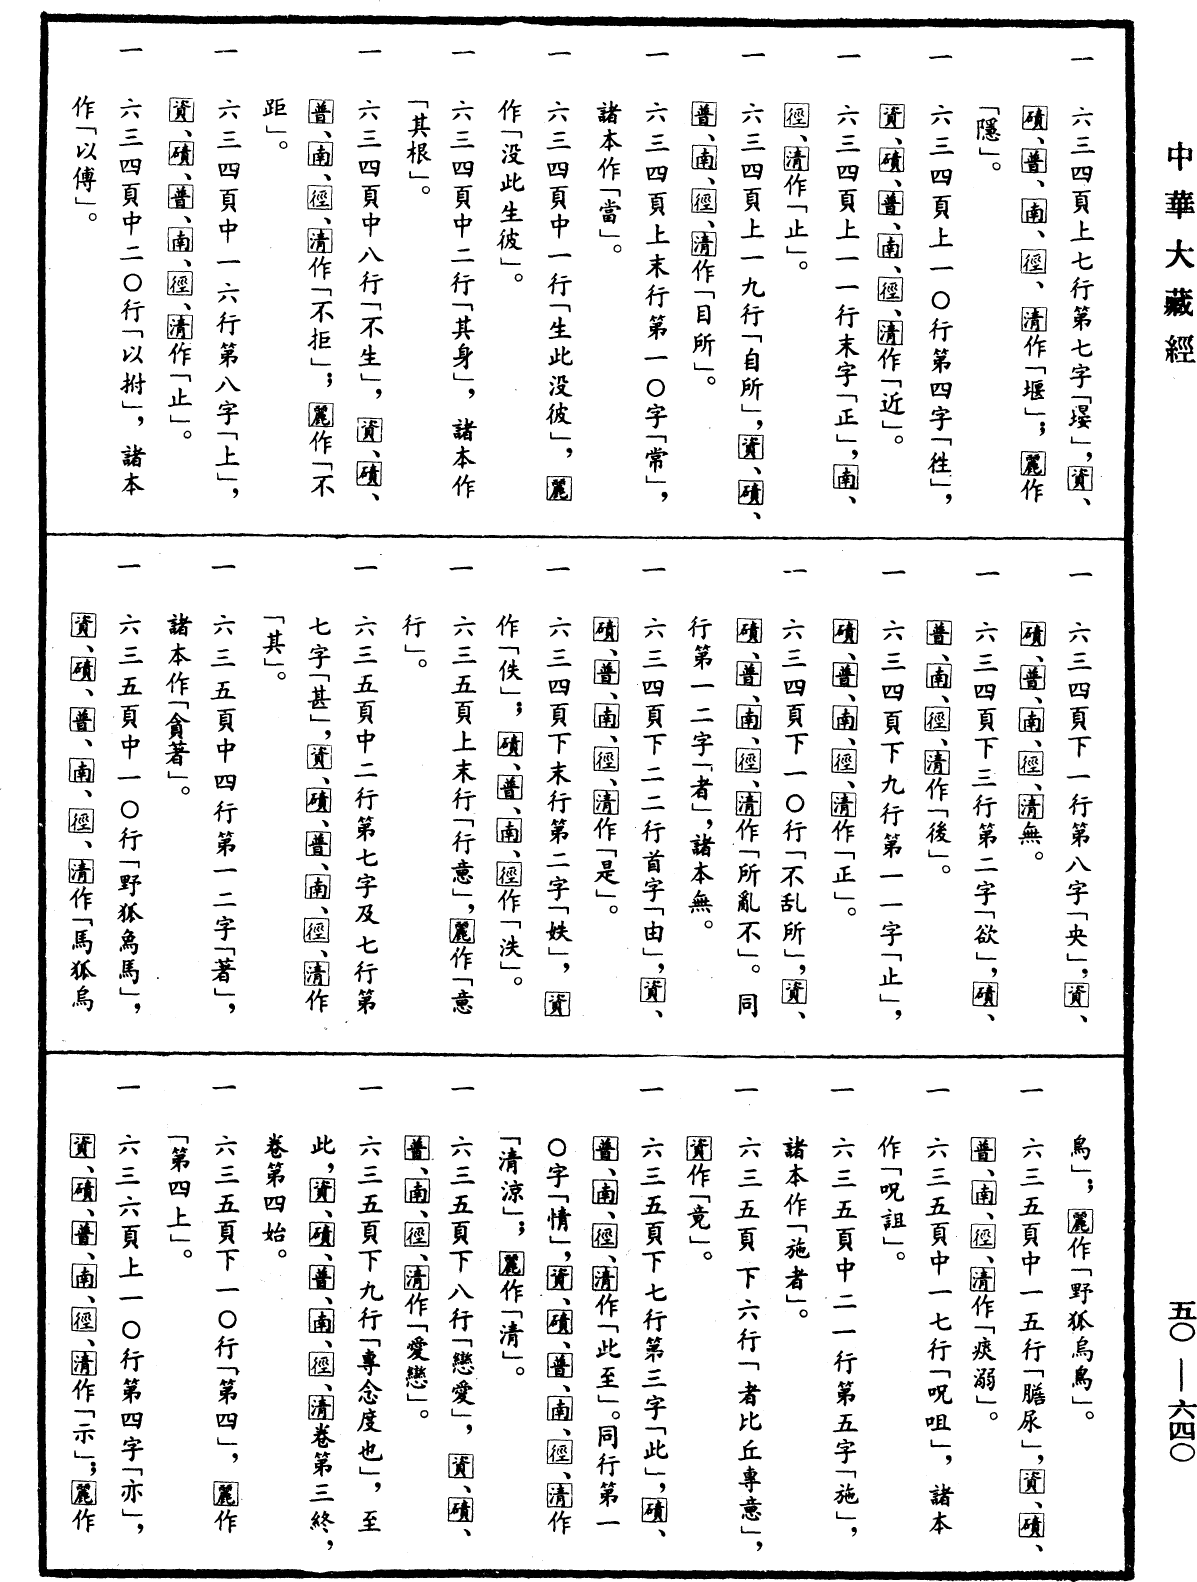 中華大藏經
五〇—六四〇
一　六三四頁上七行第七字「堰」，資、
磧、普、南、徑、清作「堰」；麗作
「隱」。
一　六三四頁上一〇行第四字「徃」，
資、磧、普、南、徑、清作「近」。
一　六三四頁上一一行末字「正」，南、
徑、清作「止」。
一　六三四頁上一九行「自所」，資、磧、
普、南、徑、清作「目所」。
一　六三四頁上末行第一〇字「常」，
諸本作「當」。
一　六三四頁中一行「生此没彼」，麗
作「没此生彼」。
一　六三四頁中二行「其身」，諸本作
「其根」。
一　六三四頁中八行「不生」，資、磧、
普、南、徑、清作「不拒」；麗作「不
距」。
一　六三四頁中一六行第八字「上」，
資、磧、普、南、徑、清作「止」。
一　六三四頁中二〇行「以拊」，諸本
作「以傅」。
一　六三四頁下一行第八字「央」，資、
磧、普、南、徑、清無。
一　六三四頁下三行第二字「欲」，磧、
普、南、徑、清作「後」。
一　六三四頁下九行第一一字「止」，
磧、普、南、徑、清作「正」。
一　六三四頁下一〇行「不乱所」，資、
磧、普、南、徑、清作「所亂不」。同
行第一二字「者」，諸本無。
一　六三四頁下二二行首字「由」，資、
磧、普、南、徑、清作「是」。
一　六三四頁下末行第二字「妷」，資
作「佚」；磧、普、南、徑作「泆」。
一　六三五頁上末行「行意」，麗作「意
行」。
一　六三五頁中二行第七字及七行第
七字「甚」，資、磧、普、南、徑、清作
「其」。
一　六三五頁中四行第一二字「著」，
諸本作「貪著」。
一　六三五頁中一〇行「野狐鳥馬」，
資、磧、普、南、徑、清作「馬狐烏
鳥」；麗作「野狐烏鳥」。
一　六三五頁中一五行「膽尿」，資、磧、
普、南、徑、清作「痰溺」。
一　六三五頁中一七行「呪咀」，諸本
作「呪詛」。
一　六三五頁中二一行第五字「施」，
諸本作「施者」。
一　六三五頁下六行「者比丘專意」，
資作「竟」。
一　六三五頁下七行第三字「此」，磧、
普、南、徑、清作「此至」。同行第一
〇字「情」，資、磧、普、南、徑、清作
「清涼」；麗作「清」。
一　六三五頁下八行「戀愛」，資、磧、
普、南、徑、清作「愛戀」。
一　六三五頁下九行「專念度也」，至
此，資、磧、普、南、徑、清卷第三終，
卷第四始。
一　六三五頁下一〇行「第四」，麗作
「第四上」。
一　六三六頁上一〇行第四字「亦」，
資、磧、普、南、徑、清作「示」；麗作